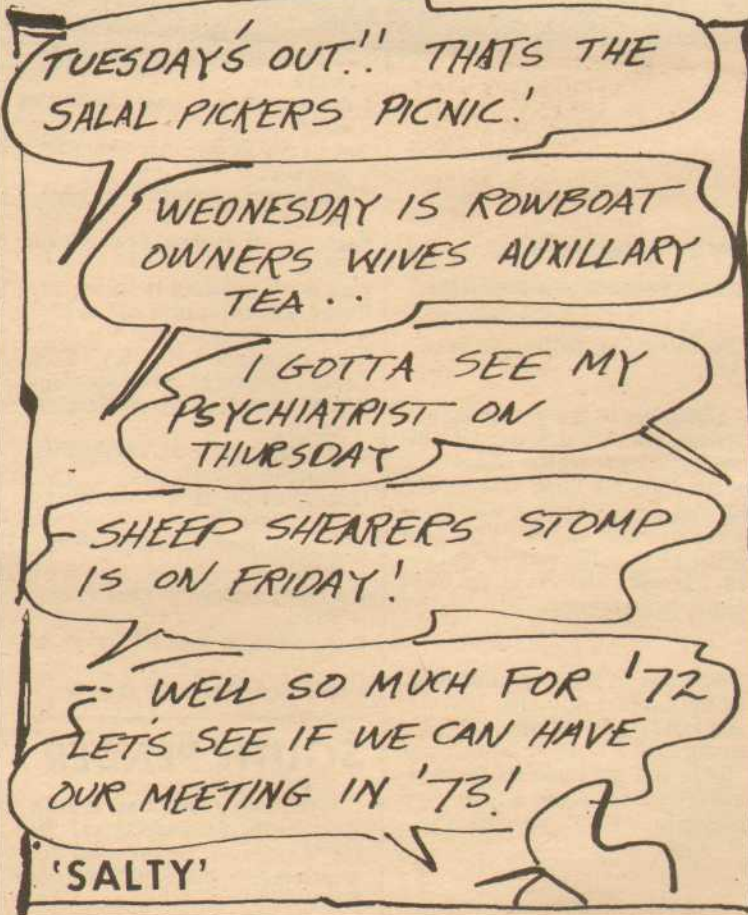 TUESDAY'S OUT!! THATS THE
SALAL PICKERS PICNIC!
WEDNESDAY IS ROWBOAT
OWNERS WIVES AUXILLARY
TEA ..
I GOTTA SEE MY
PSYCHIATRIST ON
THURSDAY
- SHEEP SHEARERS STOMP
IS ON FRIDAY!
-- WELL SO MUCH FOR '72
LET'S SEE IF WE CAN HAVE
OUR MEETING IN '73!
'SALTY'